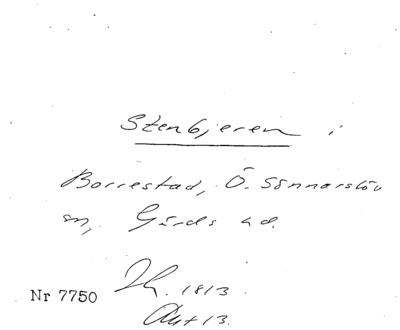 Stenbjeren i
Borrestad, Ö. Sönnarslöv
sn, Gärds hd.
Th. 1813
Nr 7750
Akt 13.